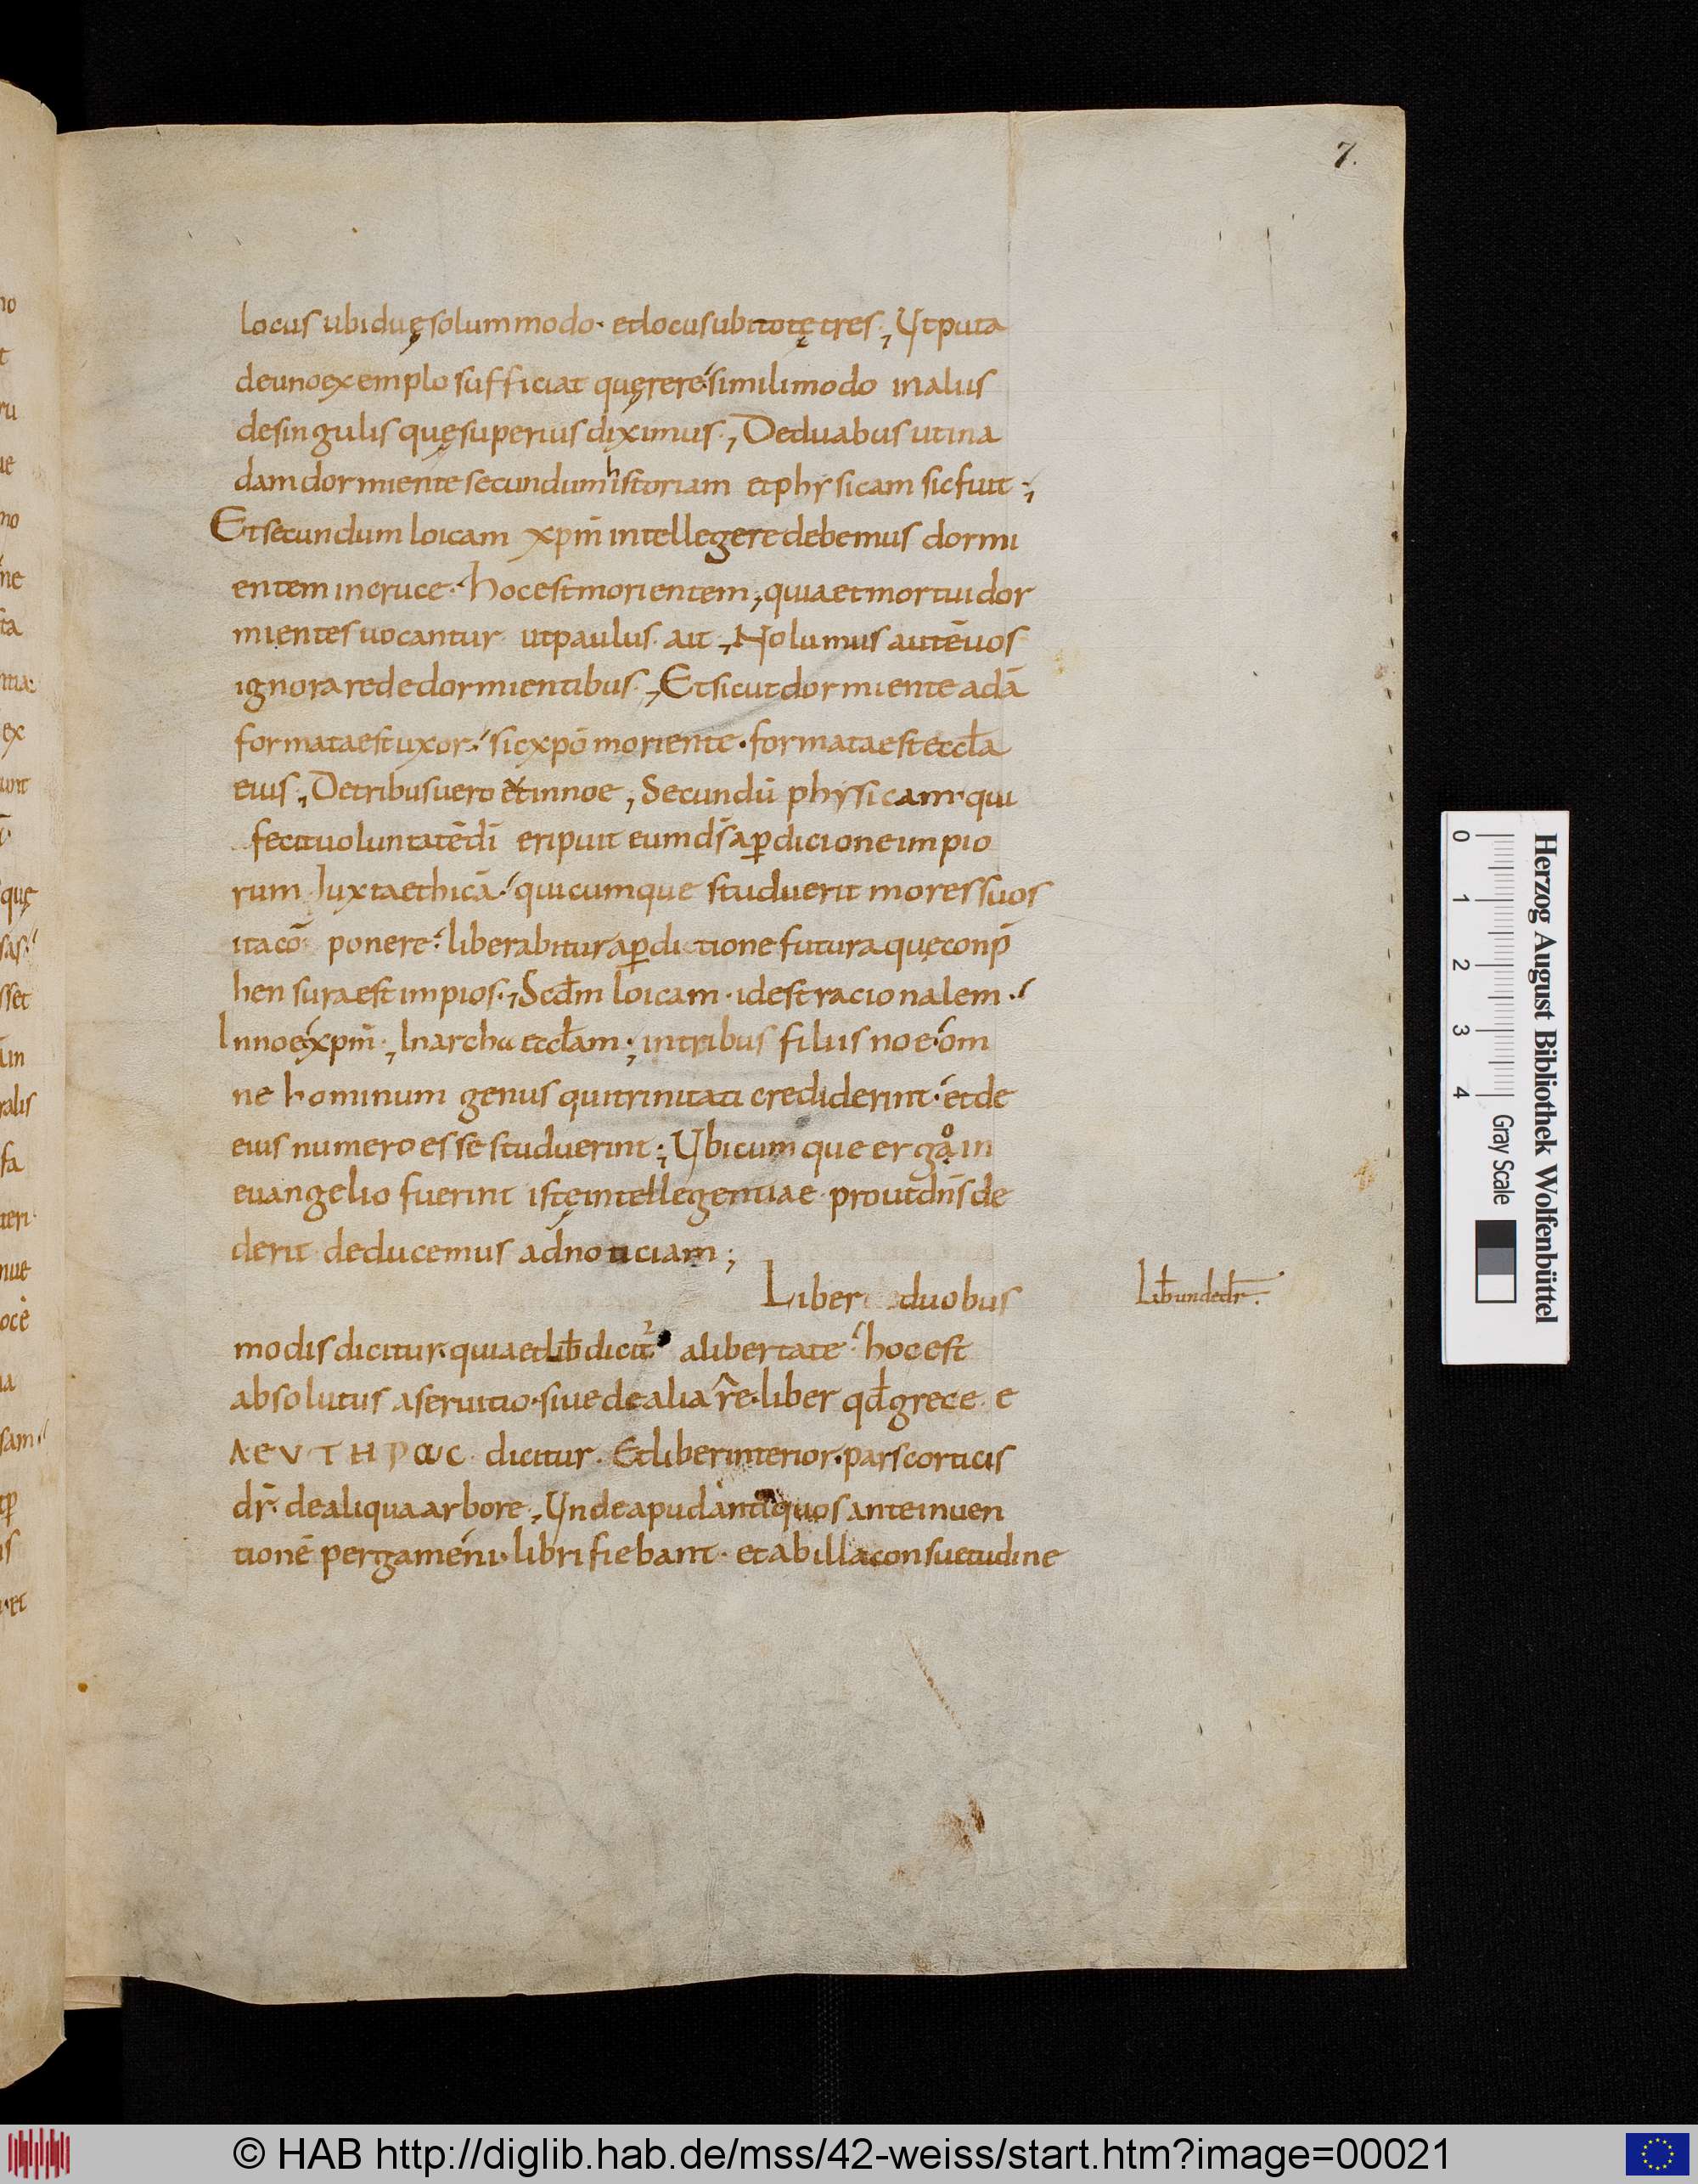 7.
locus ubi duę solummodo· et locus ubi totę tres·, Ut puta
de uno exemplo sufficiat quęrere simili modo in aliis
de singulis quę superius diximus·, De duabus ut in a
dam dormiente secundum historiam et physicam sic fuit·,
Et secundum loicam xpm̄ intellegere debemus dormi
entem in cruce· hoc est morientem, quia et mortui dor
mientes uocantur· ut paulus· ait·, Nolumus autē uos
ignorare de dormientibus·, Et sicut dormiente adā
formata est uxor· sic xpō moriente· formata est eccła
eius·, De tribus uero et in noe, Secundū physicam· qui
fecit uoluntatē dī eripuit eum ds̄ a ꝑdicione impio
rum Iuxta ethicā· quicumque studuerit mores suos
ita cō ponere· liberabitur a ꝑdictione futura quę conp̄
hensura est impios·, Scđm loicam· id est racionalem·
In noe xpm̄·, In archa eccłam·, in tribus filiis noe· om
ne hominum genus qui trinitati crediderint· et de
eius numero esse studuerint·, Ubicumque ergo in
euangelio fuerint istę intellegentiae· prout dn̄s de
derit deducemus ad noticiam;
Liber duobus
Lib̄ unde dr̄·
modis dicitur· quia et lib̄ dicit᷑ a libertate· hoc est
absolutus a seruitio· siue de alia re· liber qđ grece· e
ΛΕVΤΗΡωC· dicitur· Et liber interior· pars corticis
dr̄· de aliqua arbore·, Unde apud antiquos ante inuen
tionē pergameni· libri fiebant· et ab illa consuetudine
0 1 2 3 4
Gray Scale
Herzog August Bibliothek Wolfenbüttel
© HAB http://diglib.hab.de/mss/42-weiss/start.htm?image=00021